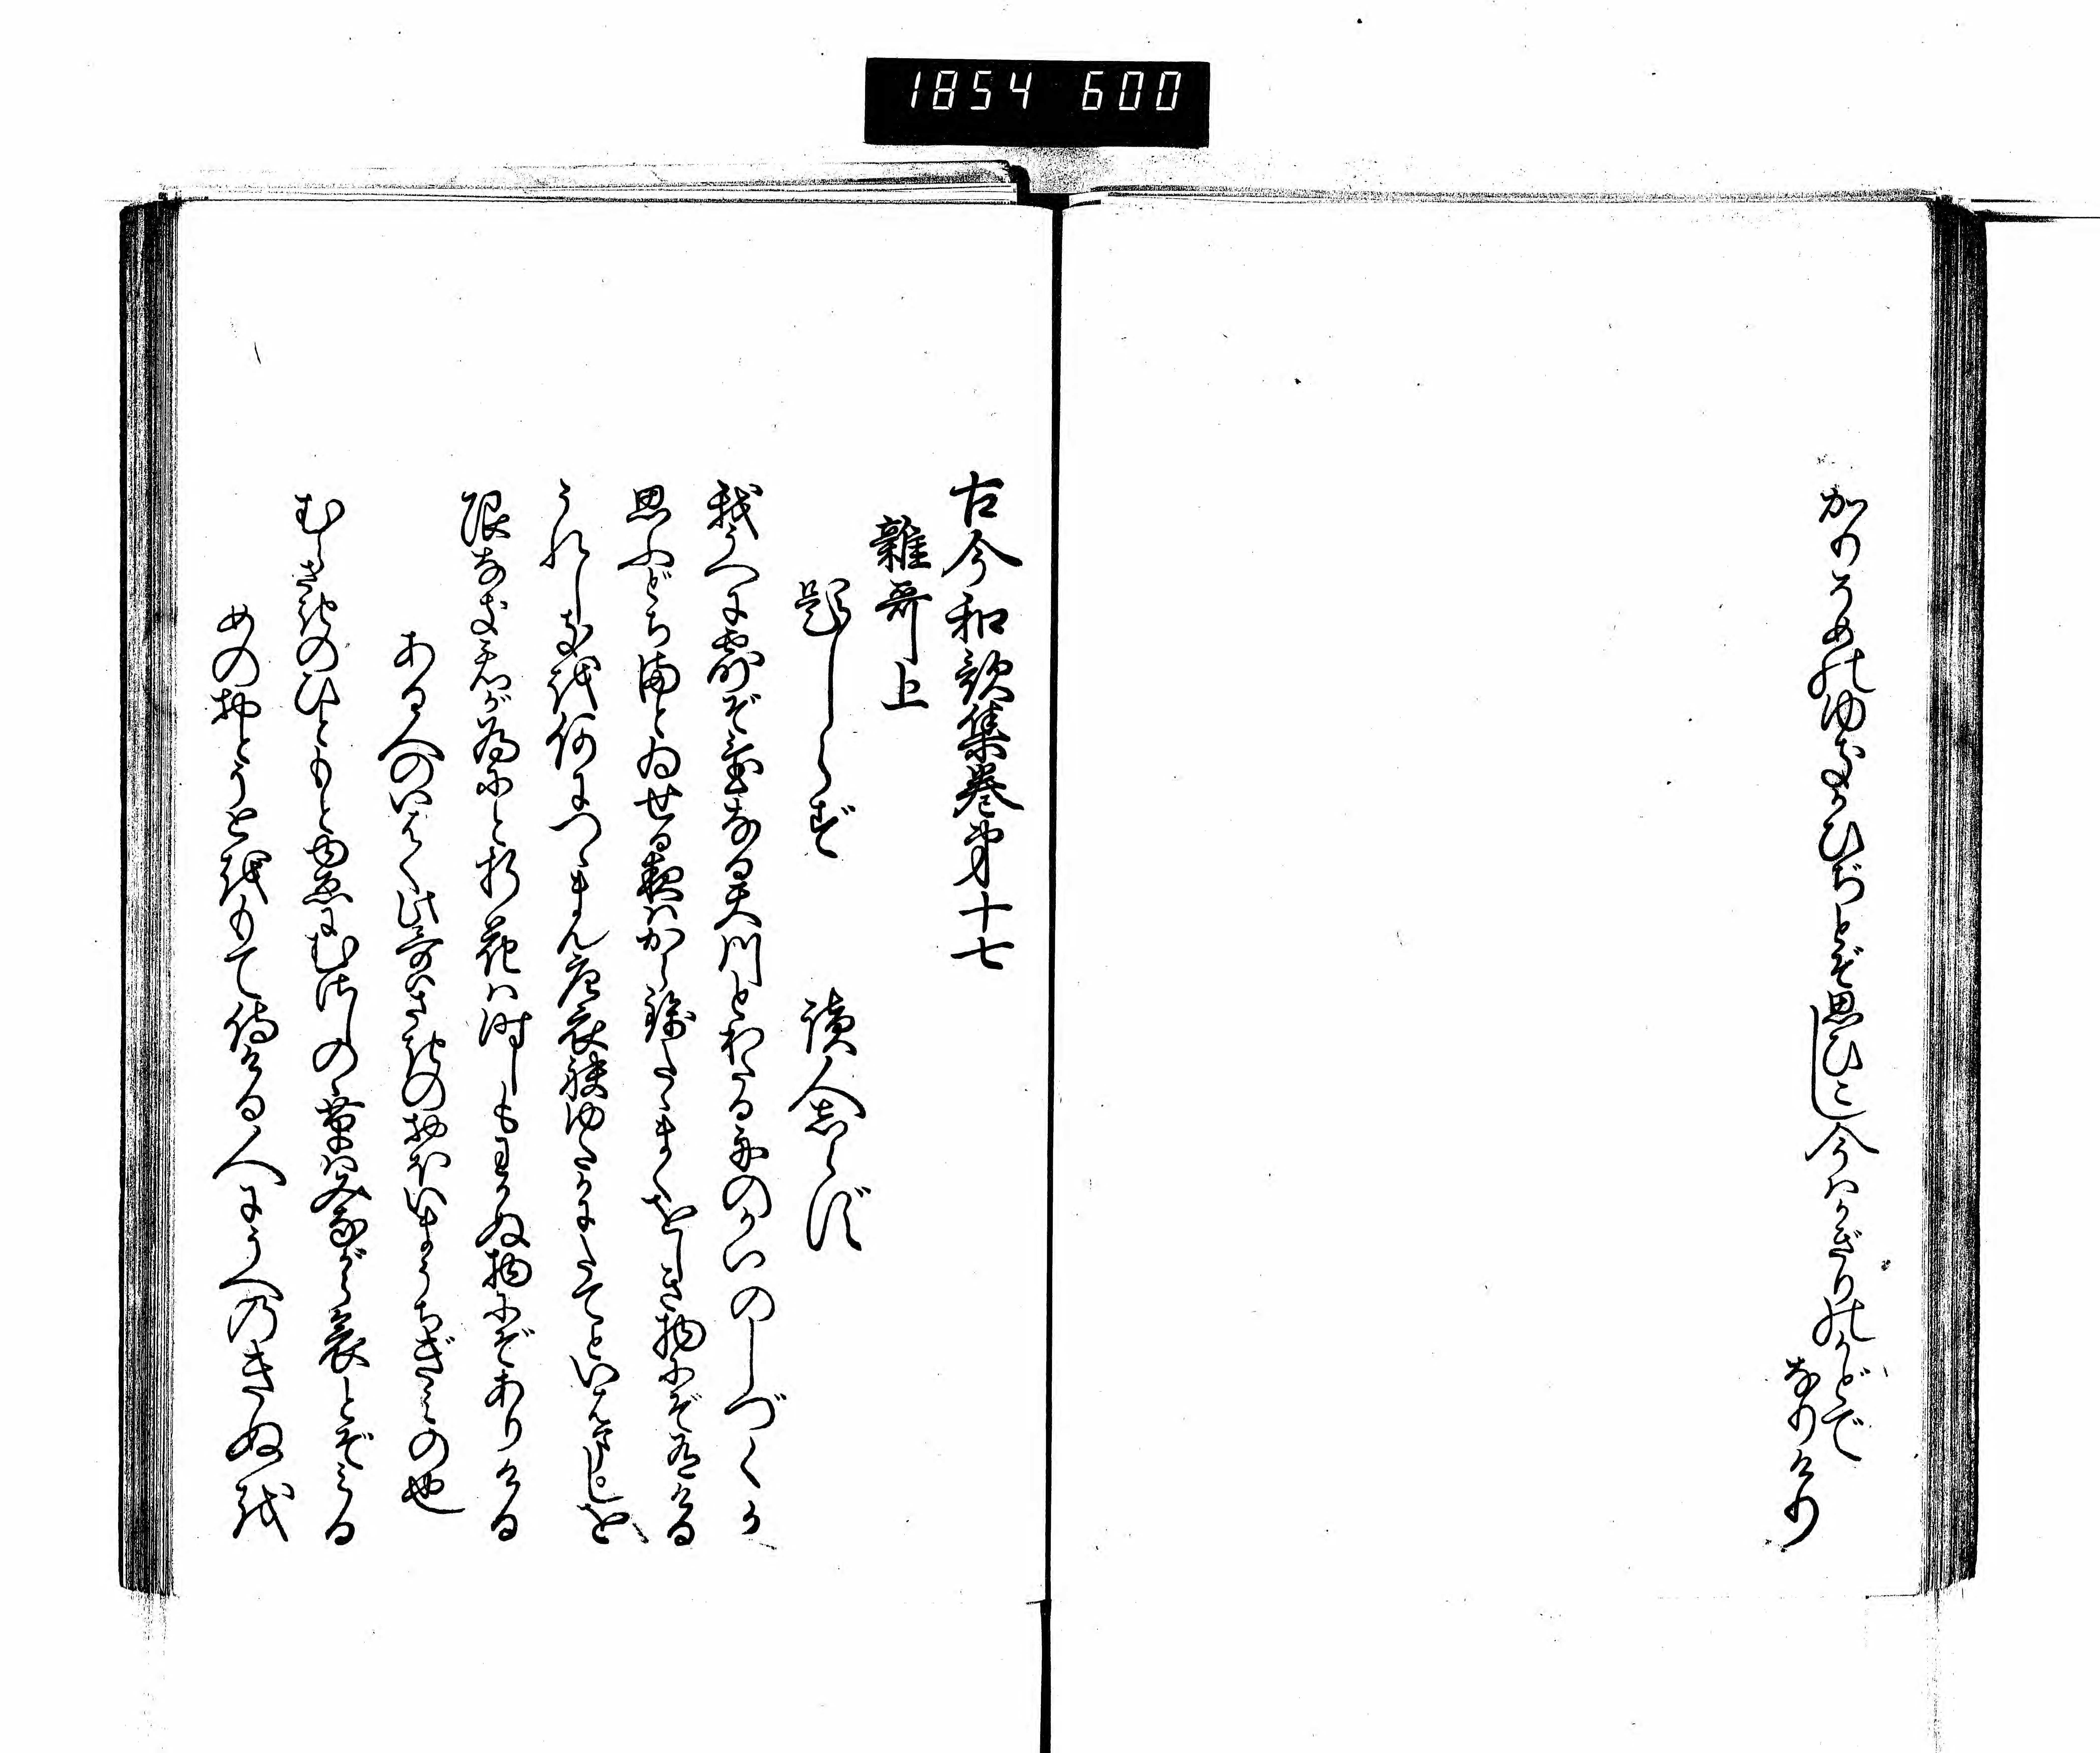 1854 600
かりそめのゆきかひぢとぞ思ひこし今はかぎりのかどで
なりけり
古今和歌集巻第十七
雑哥上
題しらず 読人しらず
我うへに露ぞ置なる天川とわたる舟のかいのしづくか
思ふどち満とゐせる夜はから錦たゝまくをしき物にぞ有ける
うれしきを何につゝまん唐衣袂ゆたかにたてといはましを
限なき君が為にと折花は時しもわかぬ物にぞありける
ある人のいはく此哥はさきのおほいまうちぎみの也
むらさきのひともとゆゑにむさしの草はみながら哀とぞみる
めのおとうとをもて侍ける人にうへのきぬを